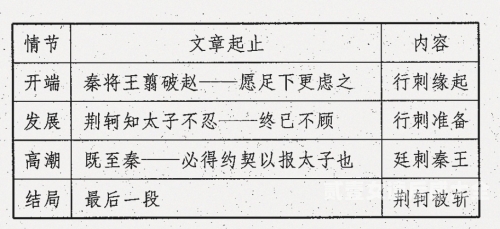 情节 文章起止 内容
开端 秦将王翦破赵——愿足下更虑之 行刺缘起
发展 荆轲知太子不忍——终已不顾 行刺准备
高潮 既至秦——必得约契以报太子也 廷刺秦王
结局 最后一段 荆轲被斩